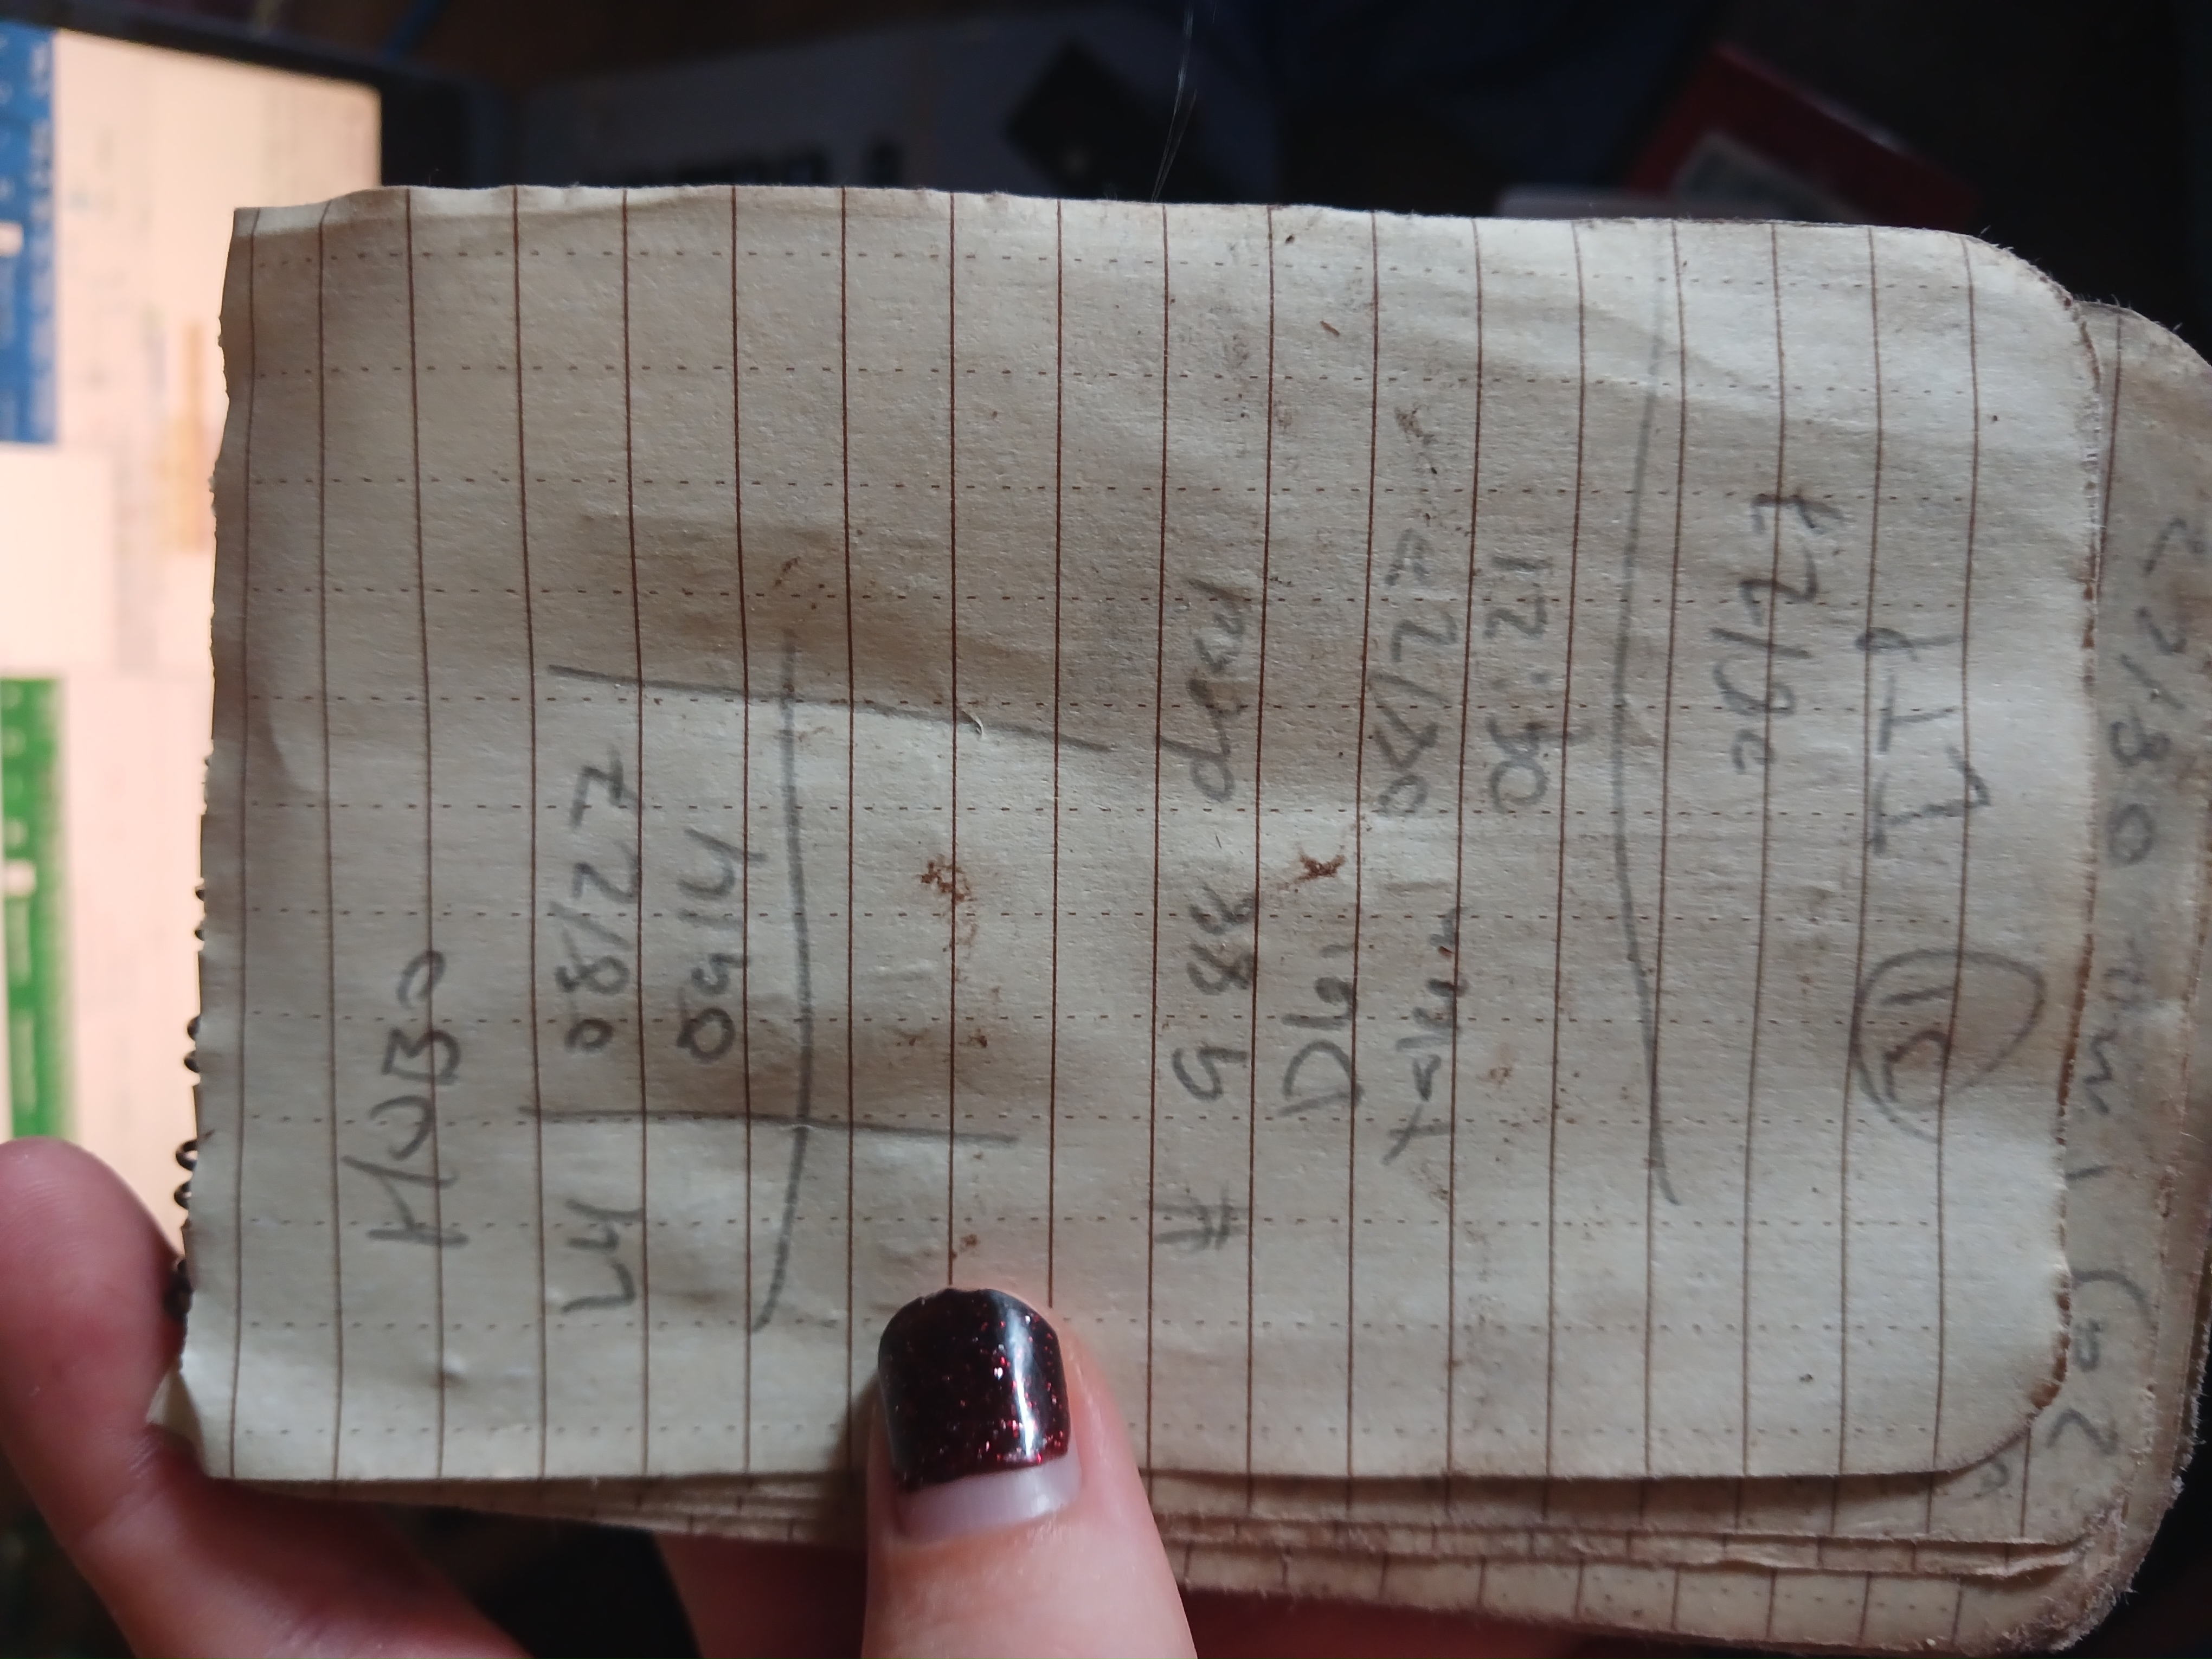 HOBO
L4 08/27
0914
# 988 dead
D6.
Taken 08/27
09:21
08/27
31 ITP
08/27